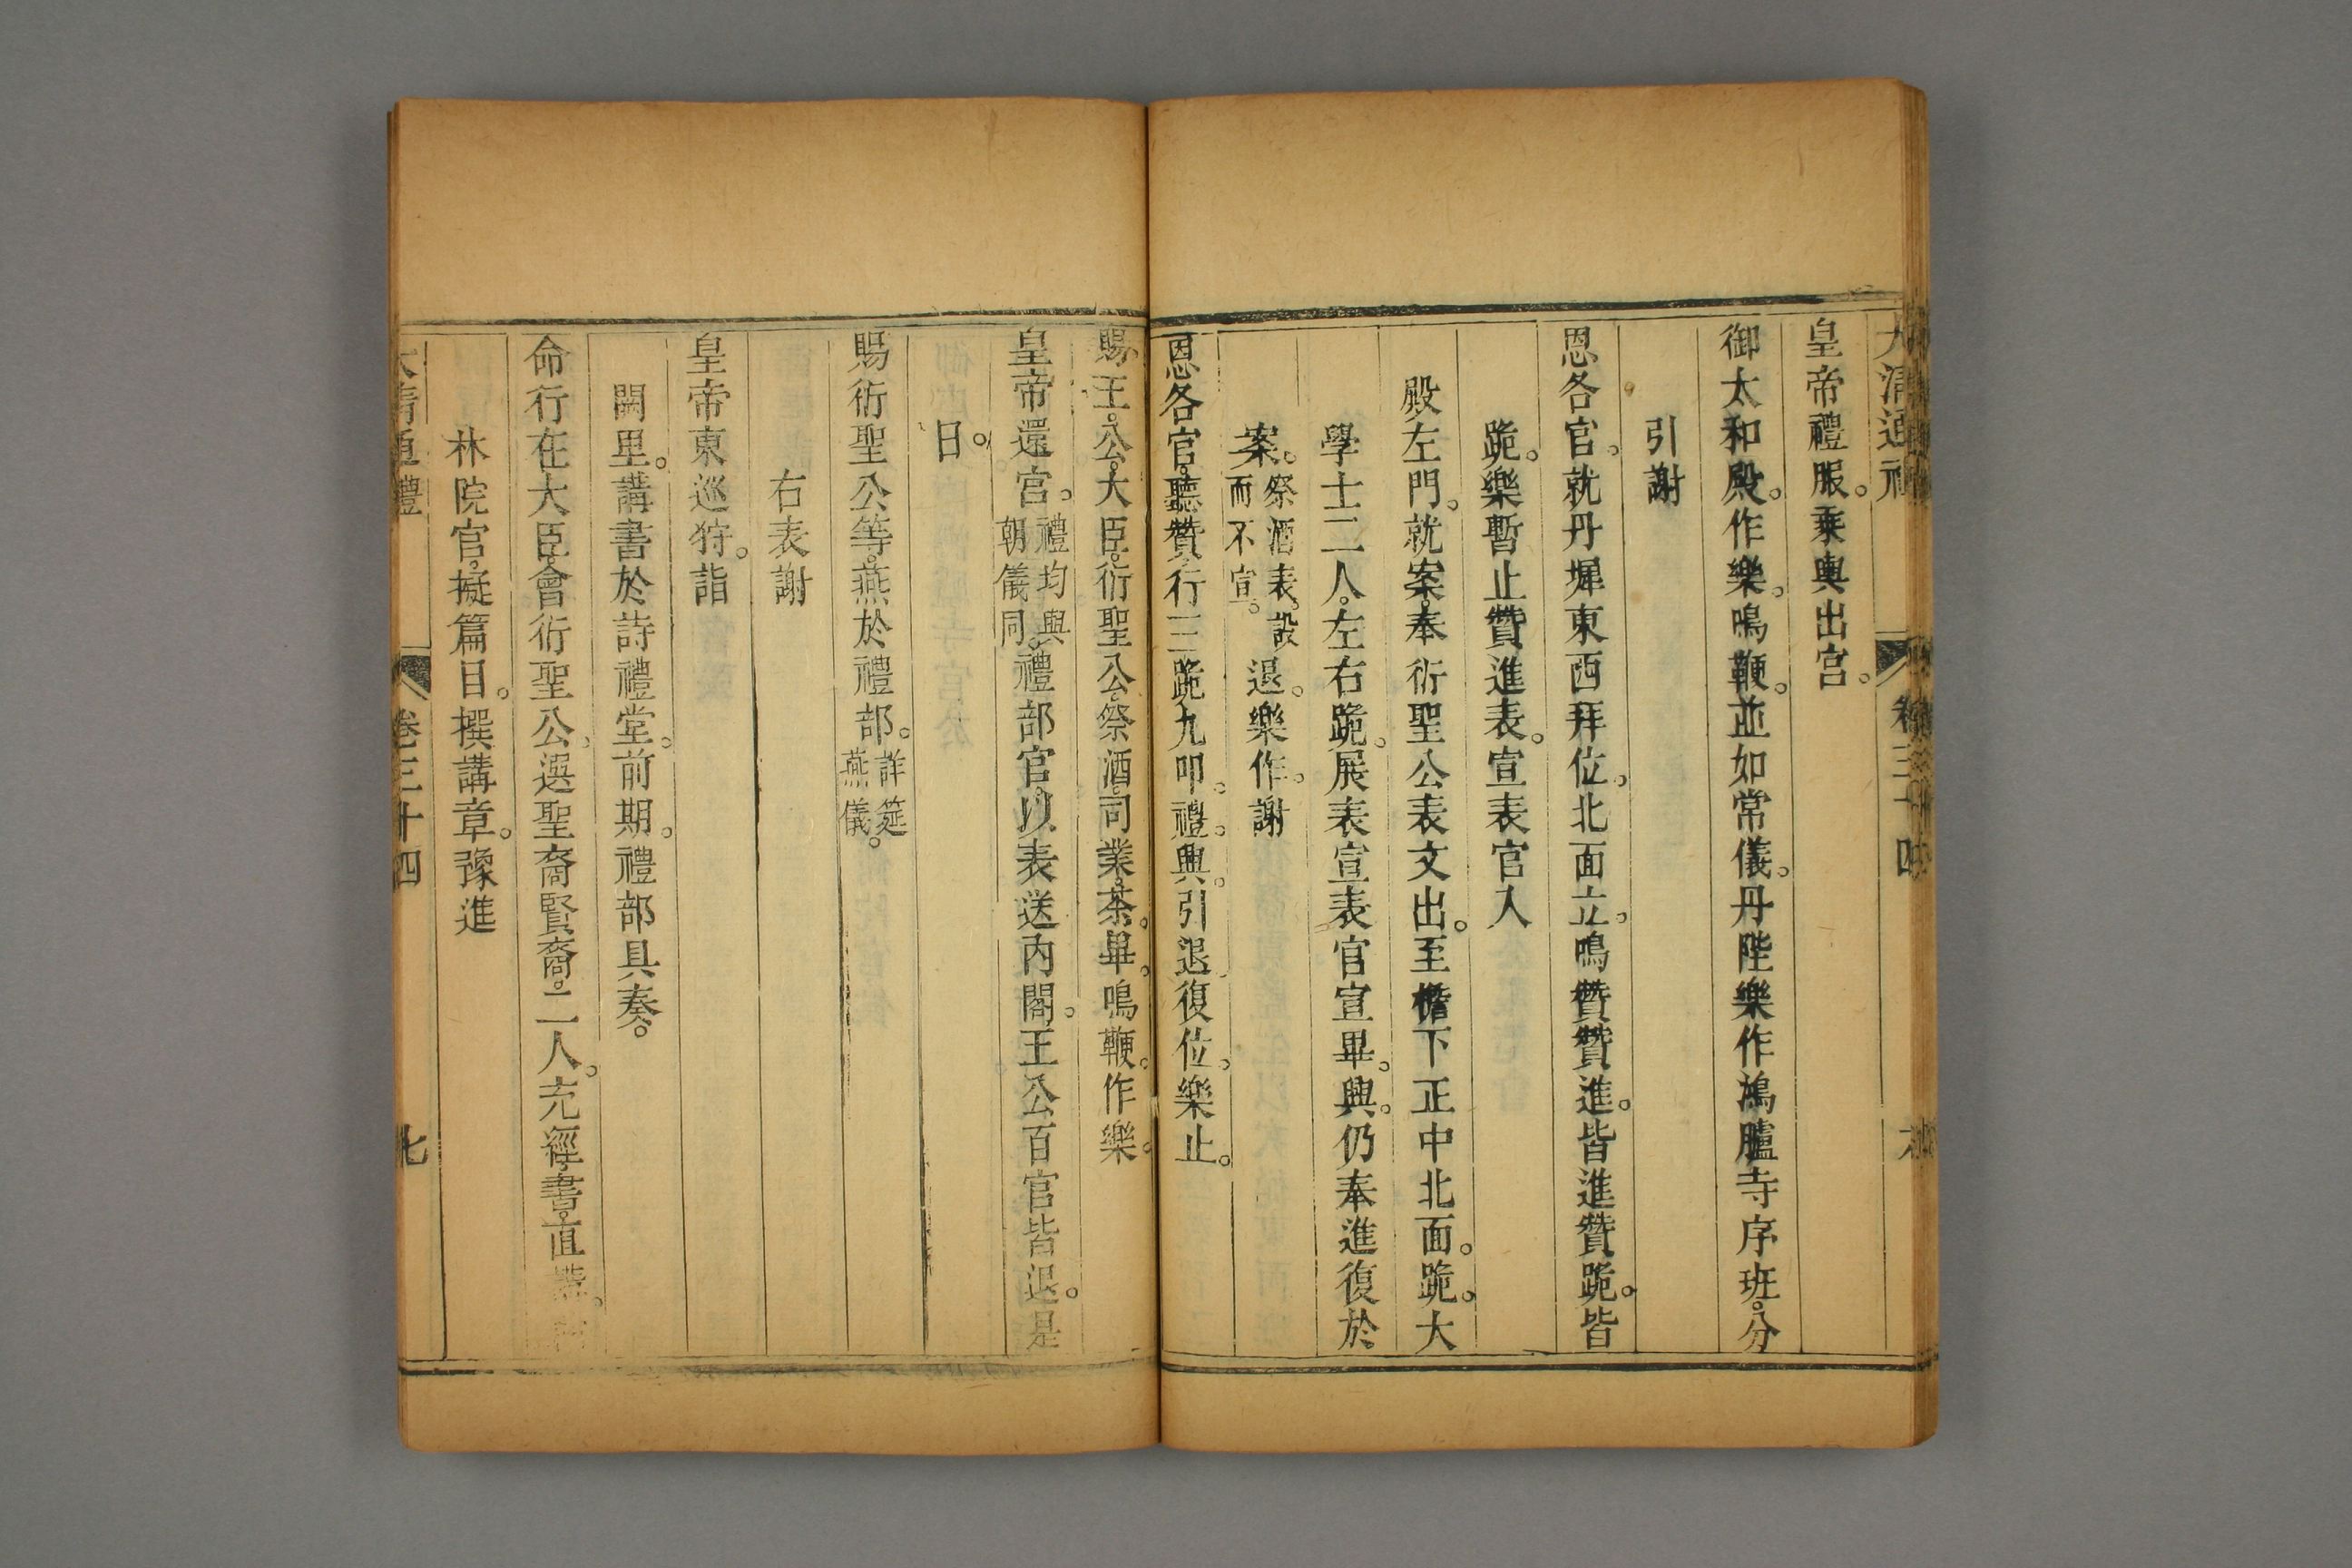 大清通禮 卷三十四 六
皇帝禮服。乘輿出宮。
御太和殿。作樂。鳴鞭。並如常儀。丹陛樂作。鴻臚寺序班。分
引謝
恩各官。就丹墀東西拜位。北面立。鳴贊贊進。皆進。贊跪。皆
跪。樂暫止。贊進表。宣表官入
殿左門。就案。奉衍聖公表文出。至檐下正中北面。跪。大
學士二人。左右跪。展表。宣表官宣畢。興。仍奉進復於
案。祭酒表。設而不宣。退。樂作。謝
恩各官。聽贊。行三跪九叩。禮。興。引退。復位。樂止。
賜王。公。大臣。衍聖公。祭酒。司業。茶。畢。鳴鞭。作樂。
皇帝還宮。禮均與朝儀同。禮部官。以表送內閣。王公百官皆退。是
日。
賜衍聖公等。燕於禮部。詳筵燕儀。
右表謝
皇帝東巡狩。詣
闕里。講書於詩禮堂。前期。禮部具奏。
命行在大臣。會衍聖公。選聖裔賢裔。二人。充經書直講。
林院官。擬篇目。撰講章。豫進
大清通禮 卷三十四 七